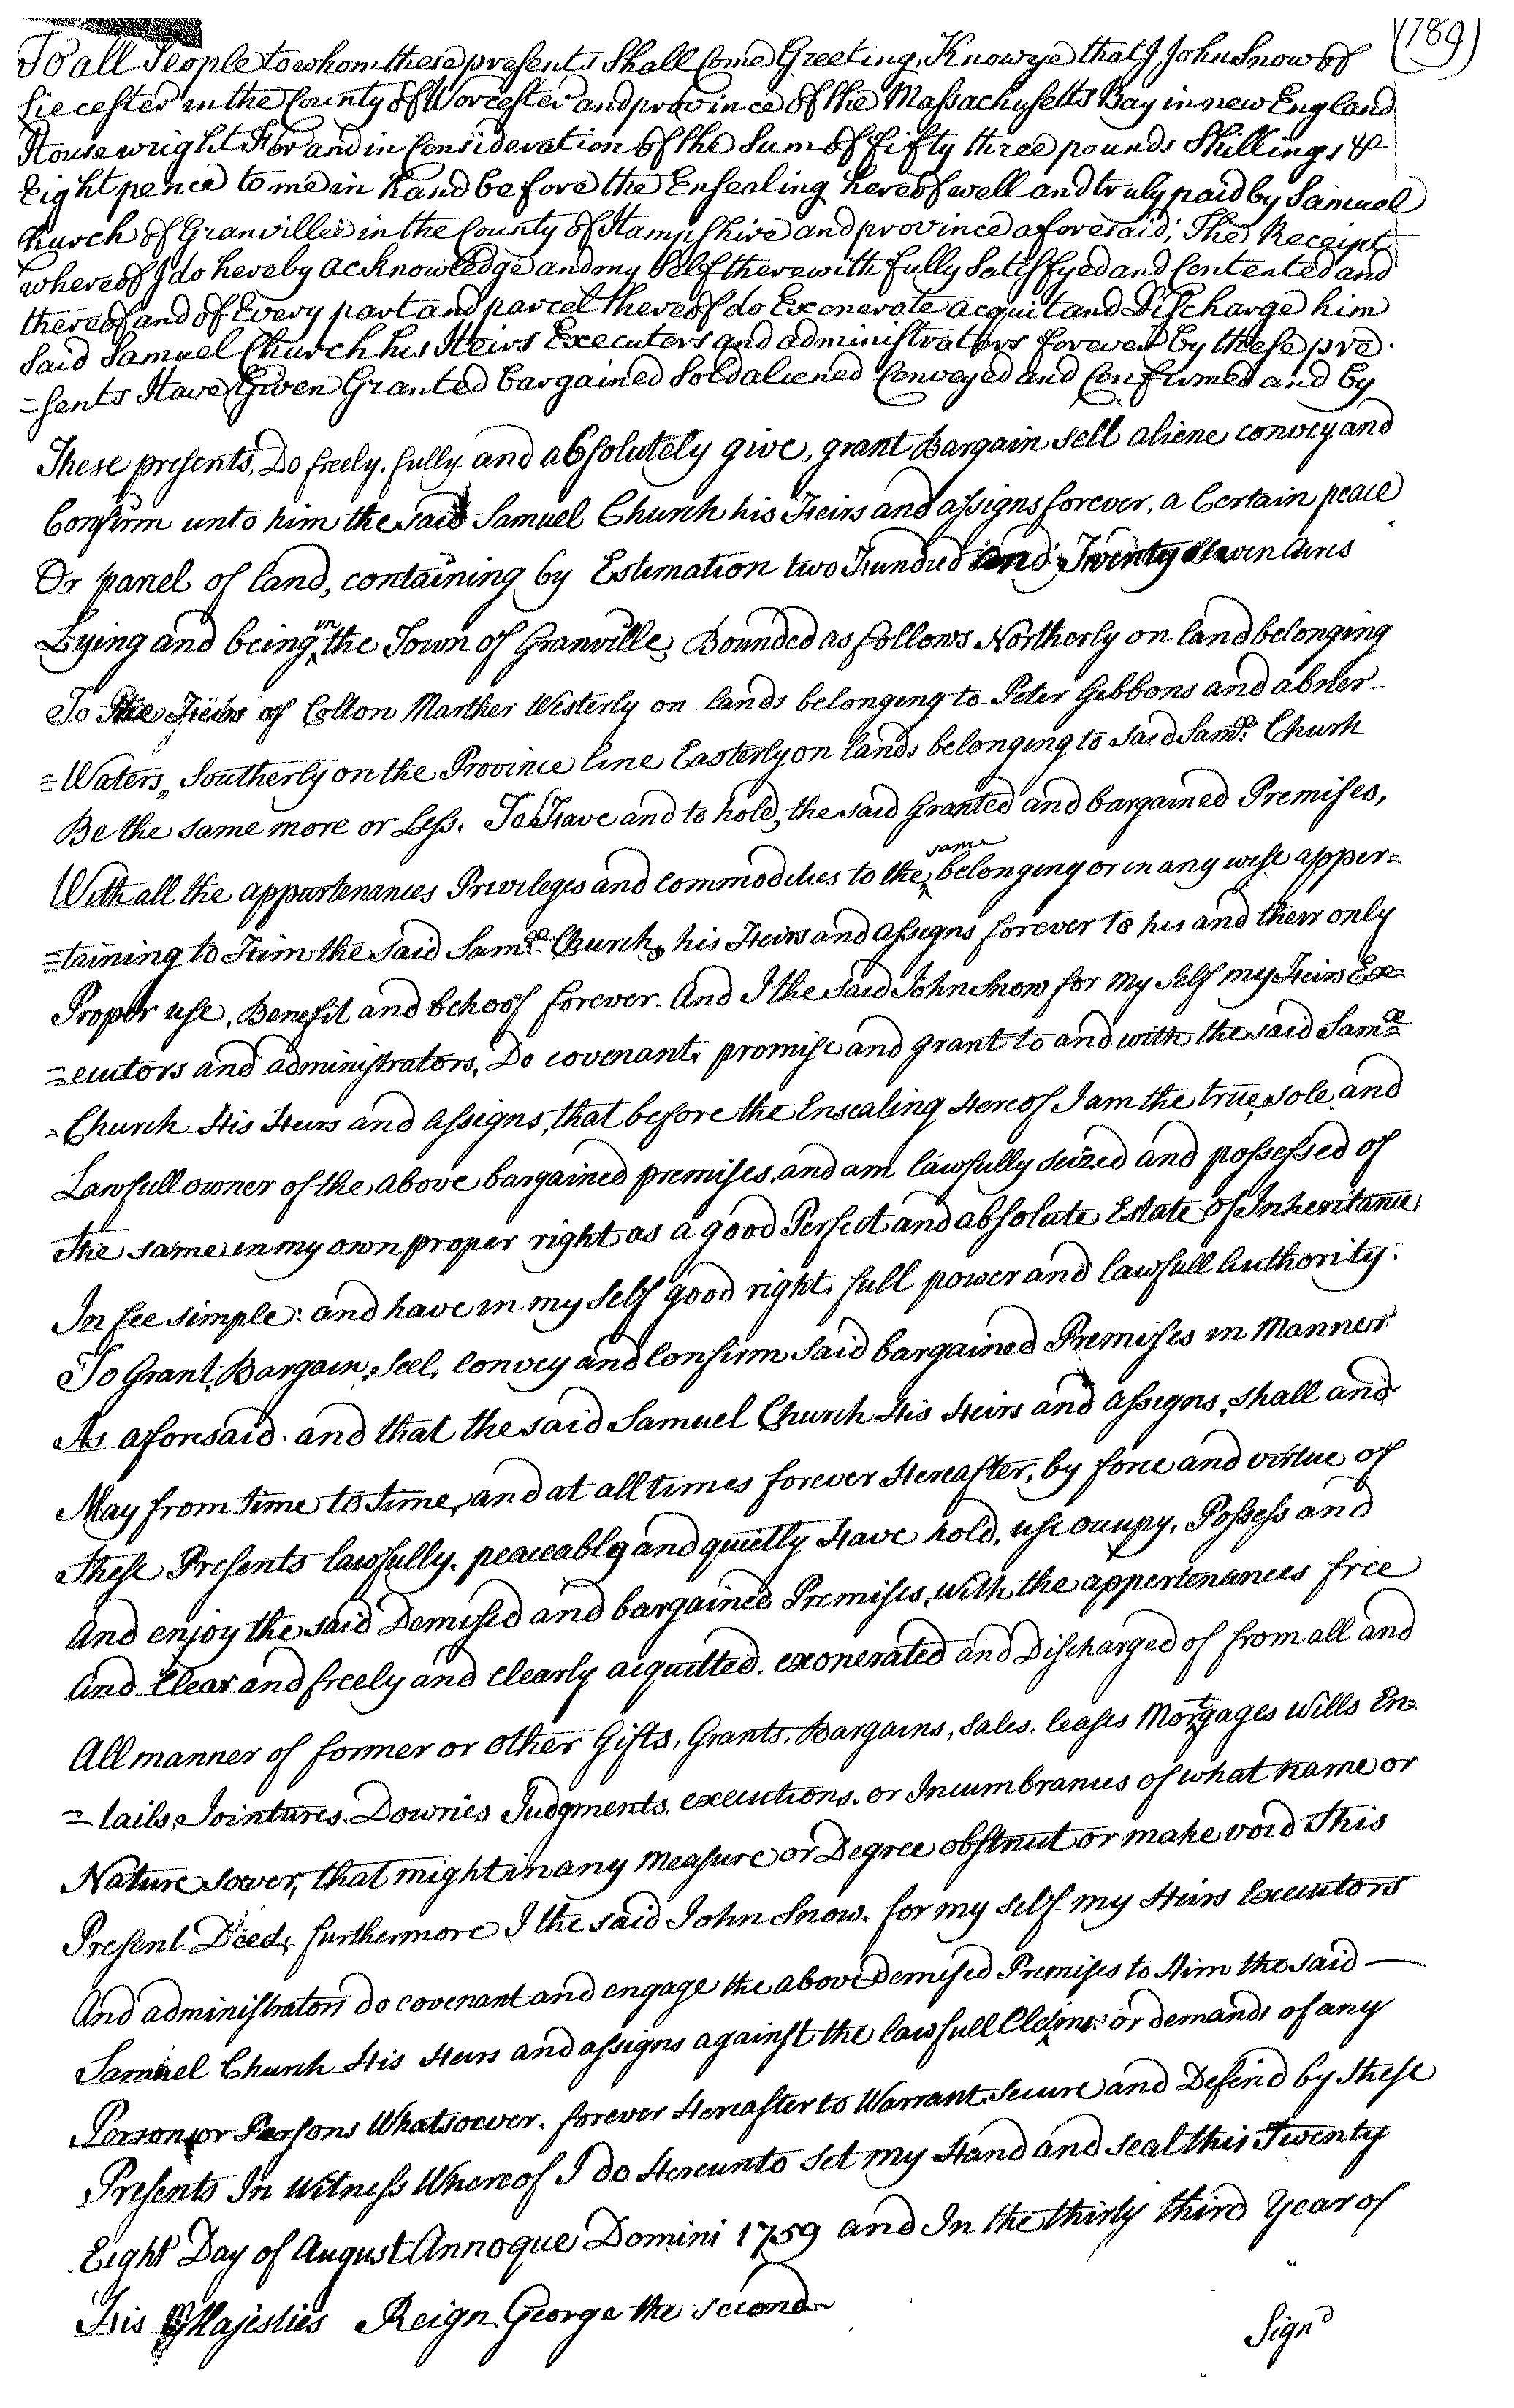 (789)
To all People to whom these presents Shall Come Greeting, Know ye that I John Snow of
Liecester in the County of Worcester and province of the Massachusetts Bay in new England
Housewright For and in Consideration of the Sum of Fifty three pounds Shillings &
Eight pence to me in hand before the Ensealing hereof well and truly paid by Samuel
Church of Granvillee in the County of Hampshire and province aforesaid; The Receipt
whereof I do hereby acknowledge and my Self therewith fully Satisfyed and Contented and
thereof and of Every part and parcel thereof do Exonerate acquit and Discharge him
Said Samuel Church his Heirs Executers and administrators forever by these pre-
=sents Have Given Granted bargained Sold aliened Conveyed and Confirmed and by
These presents, Do freely. fully and absolutely give, grant Bargain sell aliene convey and
Confirm unto him the said Samuel Church his Heirs and assigns forever, a Certain peace
Or parcel of land, containing by Estimation two Hundred and Twenty Seven acres
Lying and being in the Town of Granville, Bounded as follows Northerly on land belonging
To the Heirs of Cotton Marther Westerly on lands belonging to Peter Gibbons and abner-
=Waters,, Southerly on the Province line Easterly on lands belonging to said Sam.ll Church
Be the same more or Less. To Have and to hold, the said Granted and bargained Premises,
With all the appurtenances Privileges and commodities to the same belonging or in any wise apper=
=taining to Him the said Sam.ll Church, his Heirs and assigns forever to his and their only
Proper use, Benefit and behoof forever. And I the said John Snow for my self my Heirs Exe=
=cutors and administrators, Do covenant, promise and grant to and with the said Sam.ll
-Church His Heirs and assigns, that before the Ensealing Hereof I am the true, sole and
Lawfull owner of the above bargained premises, and am lawfully seized and possessed of
The same in my own proper right as a good Perfect and absolute Estate of Inheritance
In fee simple: and have in my self good right, full power and lawfull authority.
To Grant, Bargain, Sell, convey and confirm said bargained Premises in Manner
As aforesaid. and that the said Samuel Church His Heirs and assigns, shall and
May from time to time, and at all times forever Hereafter, by force and virtue of
These Presents lawfully. peaceably and quietly Have hold, use occupy, Possess and
And enjoy the said Demised and bargained Premises, with the appertenances free
And Clear and freely and clearly acquitted. exonerated and Discharged of from all and
All manner of former or other Gifts, Grants, Bargains, Sales, leases Mortgages Wills En=
=tails, Jointures. Dowries Judgments. executions. or Incumbrances of what name or
Nature soever, that might in any measure or Degree obstruct or make void This
Present Deed, furthermore I the said John Snow. for my self my Heirs Executors
And administrators do covenant and engage the above Demised Premises to Him the said —
Samuel Church His Heirs and assigns against the lawfull Claims or demands of any
Person or Persons Whatsoever. forever Hereafter to Warrant, secure and Defend by these
Presents In witness Whereof I do Hereunto set my Hand and seal this Twenty
Eight Day of August Annoque Domini 1759 and In the thirty third Year of
His Majesties Reign George the second
Sign'd